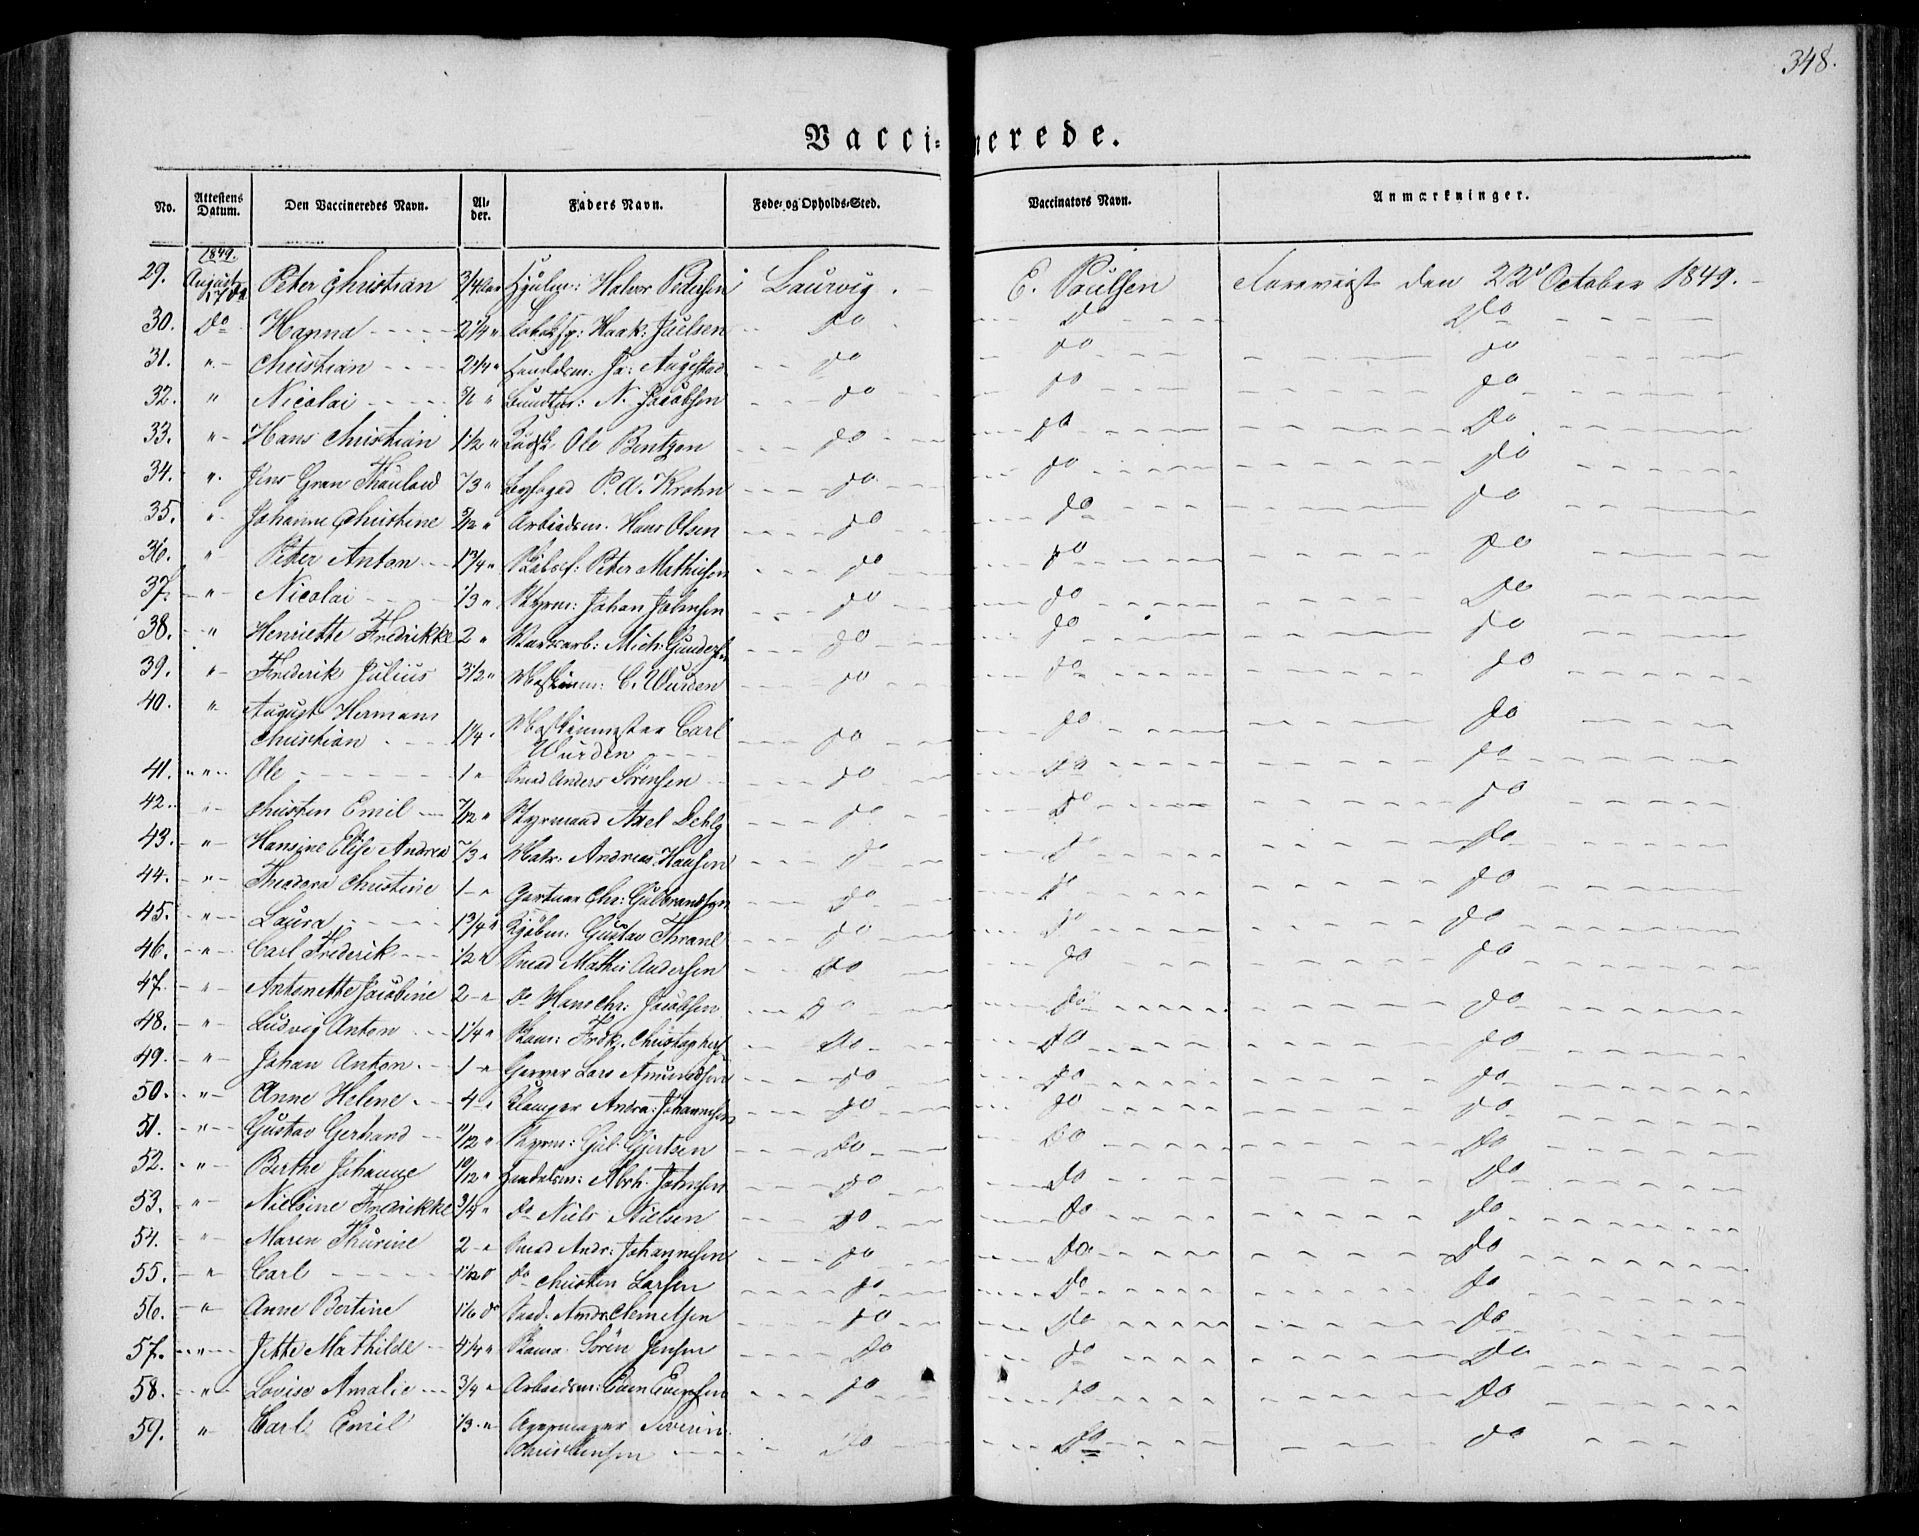 348.
Vaccinerede.
No. Attestens Datum. Den Vaccineredes Navn. Alder. Faders Navn. Føde- og Opholds-Sted. Vaccinators Navn. Anmærkninger.
1849.
29. August Peter Christian 3/4 Halvor Pedersen Laurvig. E. Paulsen Foreviist den 22d October 1849.
30. Do Hanna 2 1/4 " Haak: Juelsen Do Do Do
31. " Christian 2 1/4 " Handelsm: do do do
32. " Nicolai " N. Jacobsen do do do
33. " Hans Christian 1 1/2 " Ole Bentzen do do Do
34. " Jens Gran Thaulow 7/3 " Byfoged P. A. Krohn do do Do
35. " Johanne Christine " Arbeidsm. Hans Olsen do do do
36. " Peter Anton 1 3/4 " Peter Mathiesen do do do
37. " Nicolai 1/3 " Styrm: Johan Johnsen do do Do
38. " Henriette Fredrikke 2 " Mich: Gunders do do do
39. " Frederik Julius 3 1/2 " C. Wurden do do do
40. " August Herman
Christian 1 1/4 " Carl do do do
Wurden
41. " Ole 1 " Smed Anders Sørensen do do do
42. " Christen Emil 7/12 " Styrmand Axel Dehly do do do
43. " Hansine Elise Andrea 7/3 " Matr: Andreas Hansen do do do
44. " Theodora Christine 1 " Gartner Chr: Gulbrandsen do do do
45. " Laura 1 3/4 " Kjöbm: Gustav Thrane do do do
46. " Carl Frederik 1/2 " Smed Mathis Andersen Do do do
47. " Antonette Jacobine 2 " Do Hans Chr: Jacobsen do do do
48. " Ludvig Anton 1 1/4 " Fredk. Christophers Do Do do
49. " Johan Anton 1 " Garver Lars Amundsen do do do
50. " Anne Helene 4 " Andrea: Johannesen do do do
51. " Gustav Gerhard 11/12 " Styrm: Gul. Gjertsen Do Do Do
52. " Berthe Johanne 10/12 " Handelsm: Abrh. Johnsen Do Do Do
53. " Nielsine Fredrikke 3/4 " do Niels Nielsen do do do
54. " Maren Thurine 2 " Smed Andr: Johannesen do Do Do
55. " Carl do Christen Larsen do Do do
56. " Anne Bertine 1 1/6 do Smed. Andr. Clemetsen do Do do
57. " Jette Mathilde 4 1/4 " Sören Jensen Do do Do
58. " Lovise Amalie 3/4 " Arbeidsm: Even Evensen do do do
59. " Carl Emil 1/3 " Severin
Christensen Do Do do